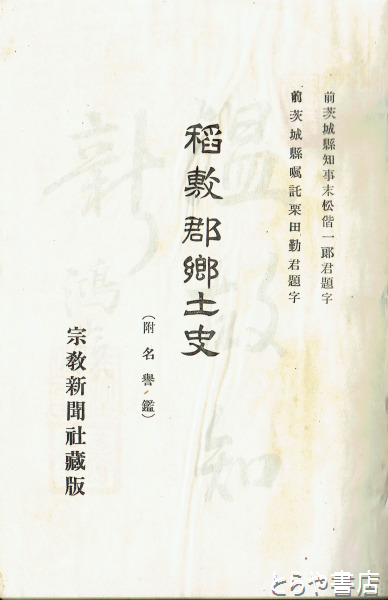 前茨城縣知事末松偕一郎君題字
前茨城縣嘱託栗田勤君題字
稻敷郡鄕土史
（附名譽鑑）
宗敎新聞社藏版
とらや書店